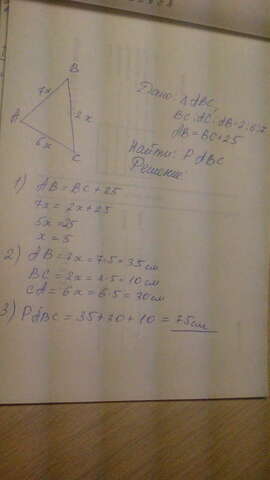 B
7x
A
2x
6x
C
Дано: ΔABC,
BC:AC:AB=2:6:7
AB=BC+25
Найти: P ABC
Решение:
1) AB=BC+25
7x=2x+25
5x=25
x=5
2) AB=7x=7·5=35см
BC=2x=2·5=10см
CA=6x=6·5=30см
3) PABC=35+30+10=75см